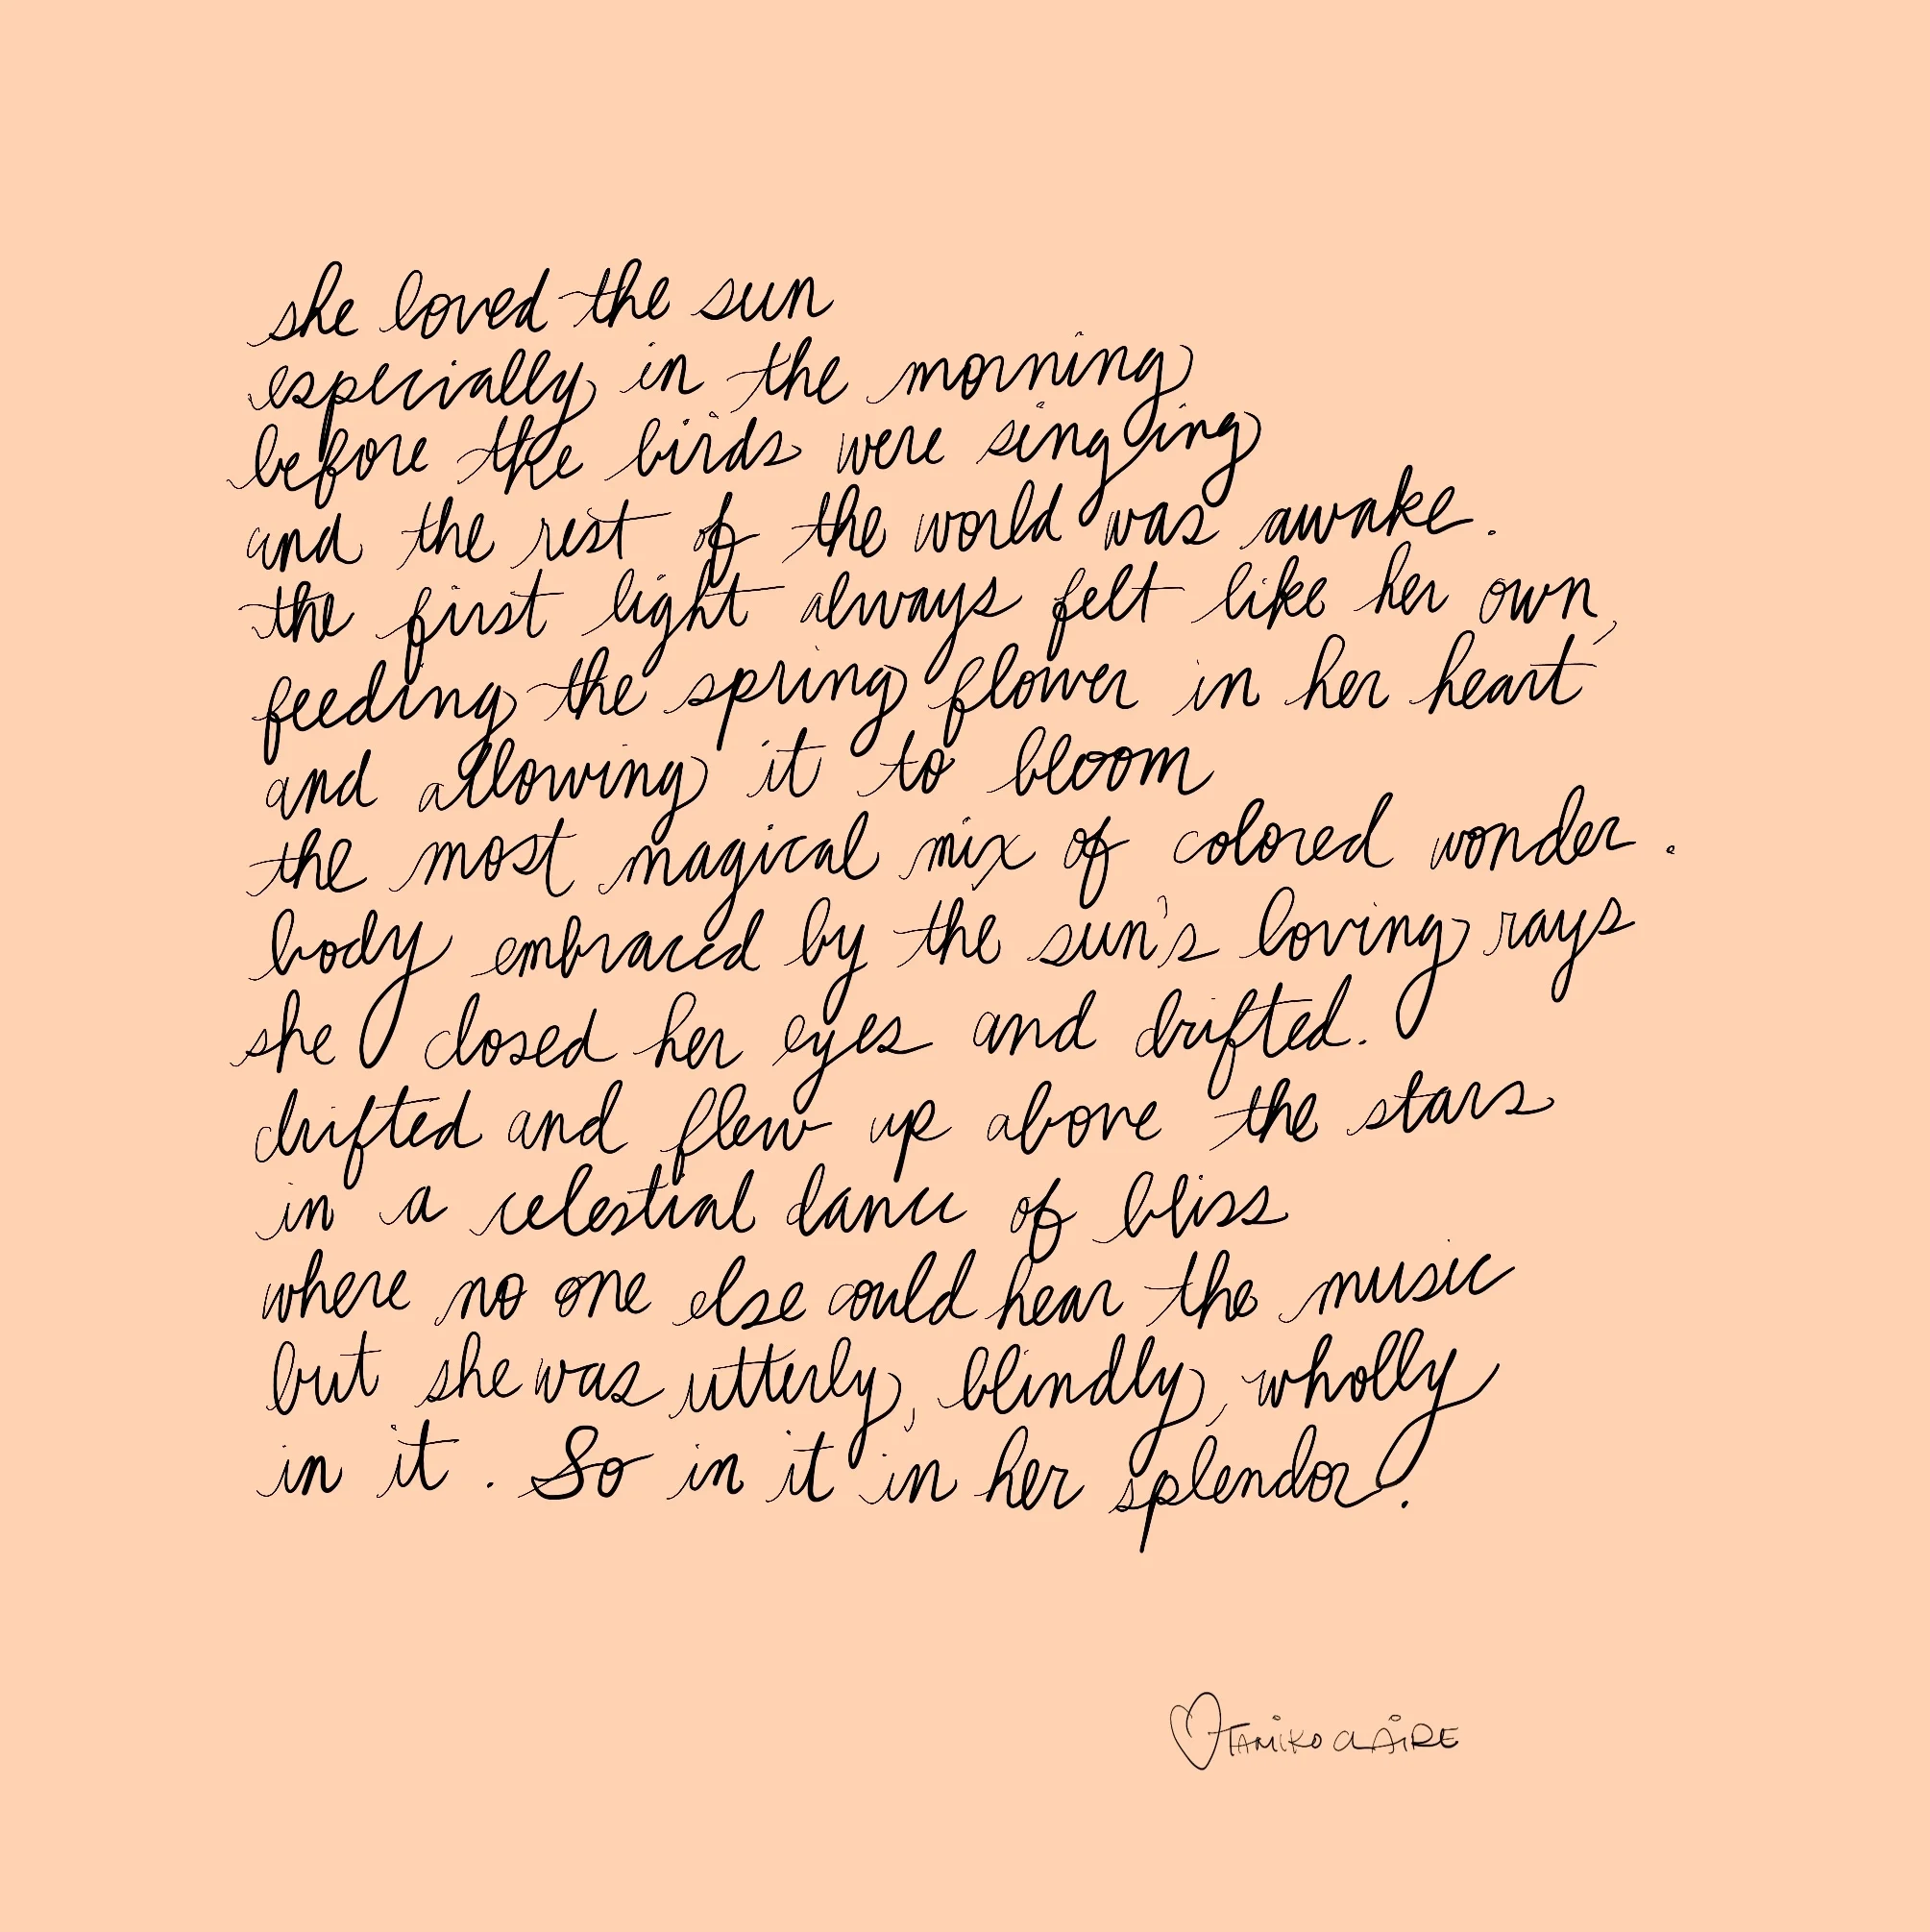 she loved the sun
especially in the morning
before the birds were singing
and the rest of the world was awake.
the first light always felt like her own,
feeding the spring flower in her heart
and allowing it to bloom
the most magical mix of colored wonder.
body embraced by the sun's loving rays
she closed her eyes and drifted.
drifted and flew up above the stars
in a celestial dance of bliss
where no one else could hear the music
but she was utterly, blindly, wholly
in it. So in it in her splendor.
TAMIKO CLAIRE